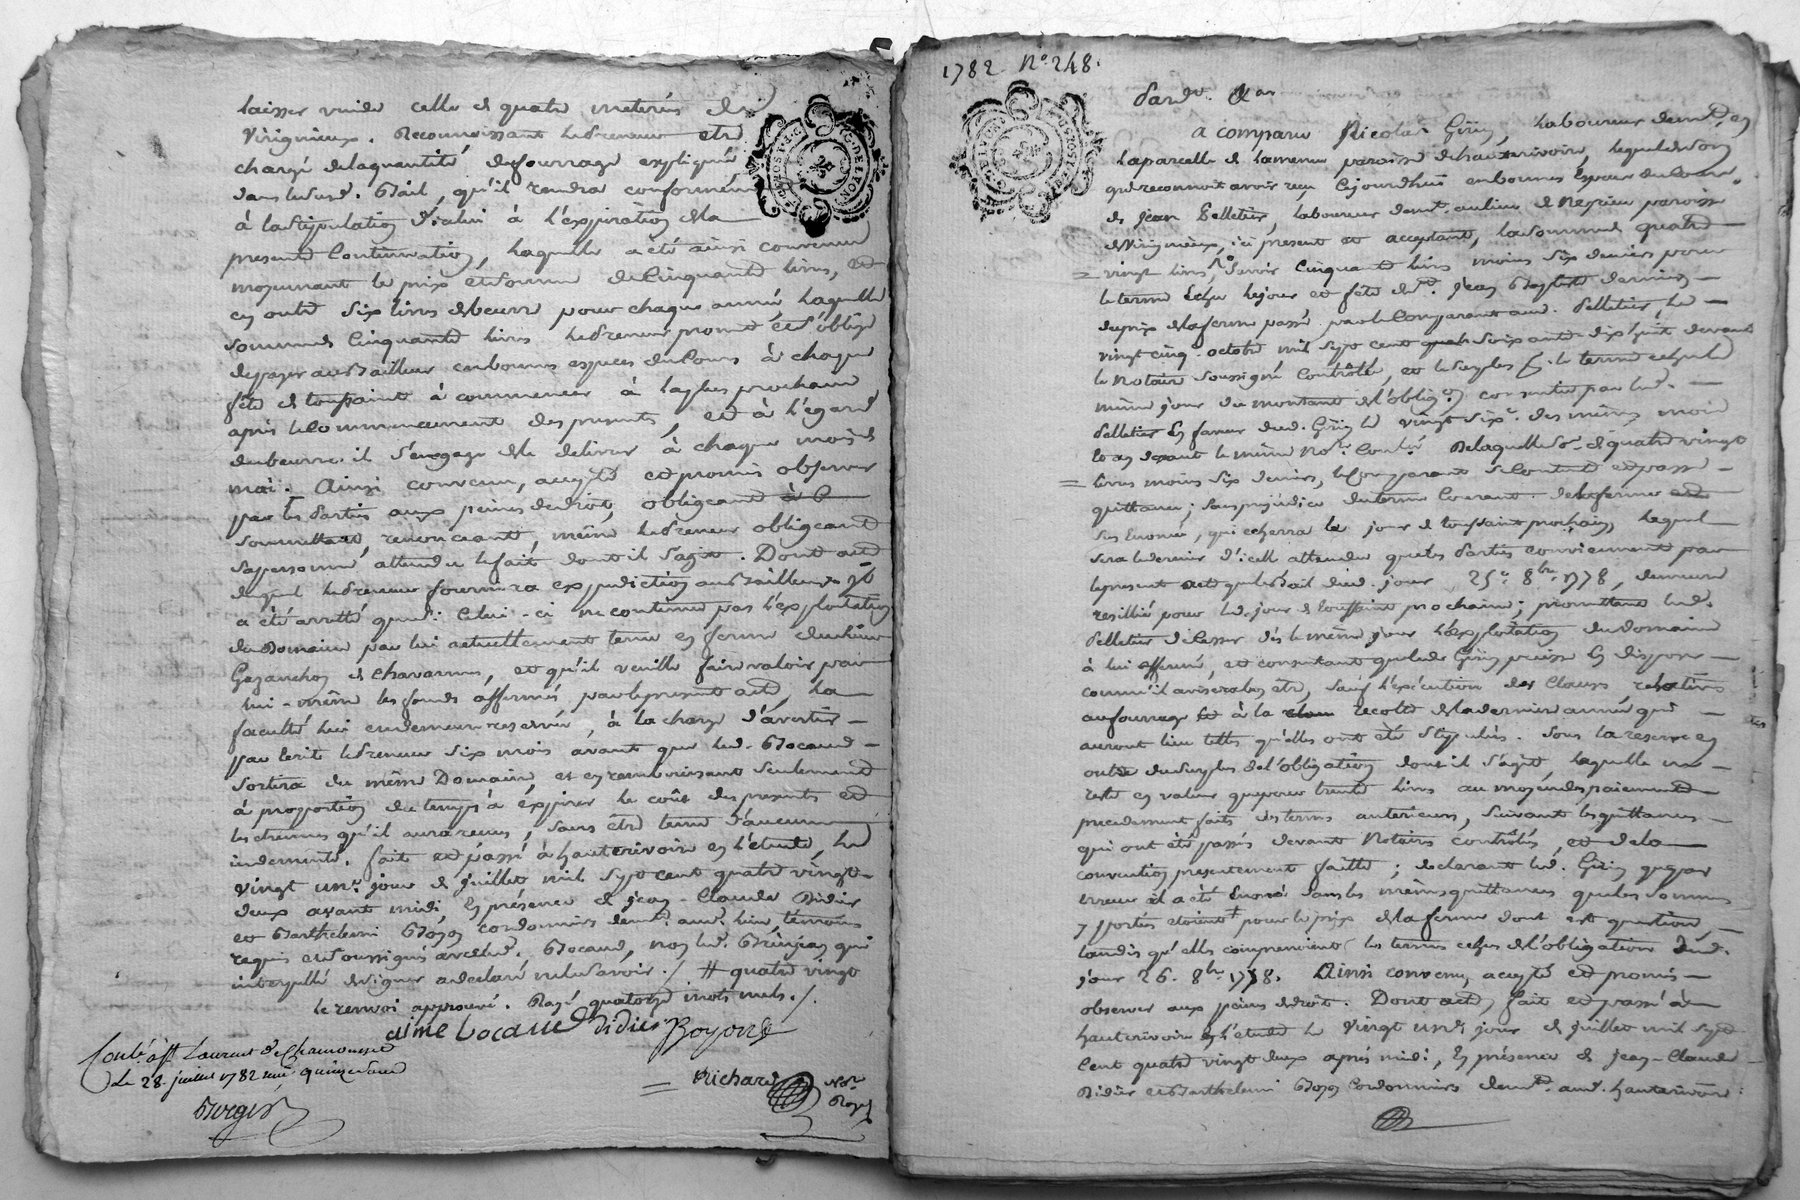 laisser vuide celle de quatre meterés de
Virignieux. Reconnoissant le preneur etre
chargé de la quantité de fourrage expliquée
dans le susd. Bail, qu'il rendra conformém
à la stipulation d'icelui à l'expiration de la
presente Continuation, laquelle a été ainsi convenue
moyennant le prix et somme de Cinquante livres, et
en outre six livres de beurre pour chaque année, laquelle
somme de Cinquante livres le preneur promet et s'oblige
de payer au Bailleur en bonnes especes de Cours à chaque
fête de toussaint à commencer à la plus prochaine
après le Commencement des presentes, et à l'égard
du beurre il s'engage de le delivrer à chaque mois de
mai. Ainsi convenu, accepté et promis observer
par les Parties aux peines de droit, obligeant
soumettant, renonceant, même le preneur obligeant
sa personne attendu le fait dont il s'agit. Dont acte
duquel le Preneur fournira expedition au Bailleur
a été arrêté que si Celui-ci ne continue pas l'exploitation
du Domaine par lui actuellement tenu en ferme
de Chavannes, et qu'il veuille faire valoir par
lui-même les fonds affermés par le present acte, la
faculté lui en demeure reservée, à la charge d'avertir
par Ecrit le Preneur six mois avant que led. Bocaud
sortira du même Domaine, et en remboursant seulement
à proportion du temps à expirer le coût des presentes et
les etrennes qu'il aura reçues, sans être tenu d'aucune
indemnité. fait et passé à hauterivoire en l'étude, le
vingt un. jour de juillet mil sept cent quatre vingt
deux avant midi, En présence de jean-Claude Didier
et Barthelemi Boyon cordonniers demt. aud. lieu, temoins
requis et soussignés avec led. Bocaud, non led. qui
interpellé de signer a declaré ne le savoir ./ # quatre vingt
le renvoi approuvé. Rayé quatorze mots nuls ./.
aimé Bocaud Didier Boyond
Conlé. à St Laurent de Chamousset
Le 28. juillet 1782 reçu quinze sous
Richard
not. Royal
Borger
1782 No. 248.
Pard. &ar
a comparu Nicolas Giriy, Laboureur demt. en
la parcelle de la meme paroisse de hauterivoire, lequel de son
gré reconnoit avoir reçu Cejourdhui en bonnes Especes du Cours
de jean Pelletier, laboureur demt. au lieu de Neyrieu paroisse
de Virignieux, ici present et acceptant, la somme de quatre
vingt livres, Savoir Cinquante livres moins six deniers pour
le terme Echu le jour et fête de St. jean Baptiste dernier
du prix de la ferme passé par le Comparant aud. Pelletier, le
vingt cinq octobre mil sept cent soixante dix huit devant
le Notaire soussigné Contrôlé, et le surplus le terme echu le
même jour du montant de l'oblig.on consentie par led.
Pelletier En faveur dud. Giriy le vingt six. des mêmes mois
et an devant le même Nore. Conlé. De laquelle so. de quatre vingt
livres moins six deniers, le Comparant se Contente et passe
quittance; sans prejudice du terme Courant de la ferme
sus Enoncée, qui echerra le jour de toussaint prochain, lequel
sera le dernier d'icelle attendu que les Parties conviennent par
le present acte que le Bail dud. jour 25e. 8bre. 1778, demeure
resillié pour led. jour de toussaint prochain; promettant led.
Pelletier de laisser dès le même jour l'exploitation du Domaine
à lui affermé, et consentant que led. Giriy puisse En disposer
comm'il avisera bon etre, sauf l'exécution des Clauses relatives
au fourrage et à la recolte de la derniere année qui
auront lieu telles qu'elles ont été stipulées. Sous la reserve en
outre du surplus de l'obligation dont il s'agit, laquelle ne
reste en valeur que pour trente livres au moyen des paiements
precedemment faits des termes anterieurs, suivant les quittances
qui ont été passés devant Notaires contrôlés, et de la
convention presentement faitte; declarant led. Giriy que par
erreur il a été Enoncé dans les mêmes quittances que les sommes
y portés etoient pour le prix de la ferme dont est question,
tandis qu'elles comprenoient les termes echus de l'obligation dud.
jour 26. 8bre. 1778. Ainsi convenu, accepté et promis
observer aux peines de droit. Dont acte, fait et passé à
hauterivoire en l'étude le vingt un. jour de juillet mil sept
Cent quatre vingt deux après midi, En présence de jean-Claude
Didier et Barthelemi Boyon Cordonniers demt. aud. hauterivoire